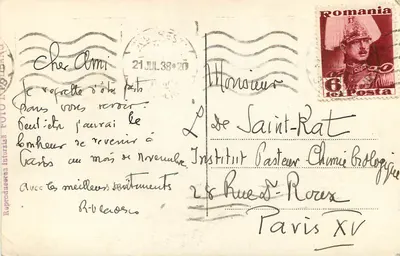 21 JUL 38
Romania
6
Posta
Cher Ami
Je regrette d'être parti
sans vous revoir.
Peut-être j'aurai le
bonheur de revenir à
Paris au mois de Novembre
avec les meilleurs sentiments
Monsieur
L de Saint-Rat
Institut Pasteur Chimie biologique
28 Rue Dr Roux
Paris XV
Reproducerea interzisă